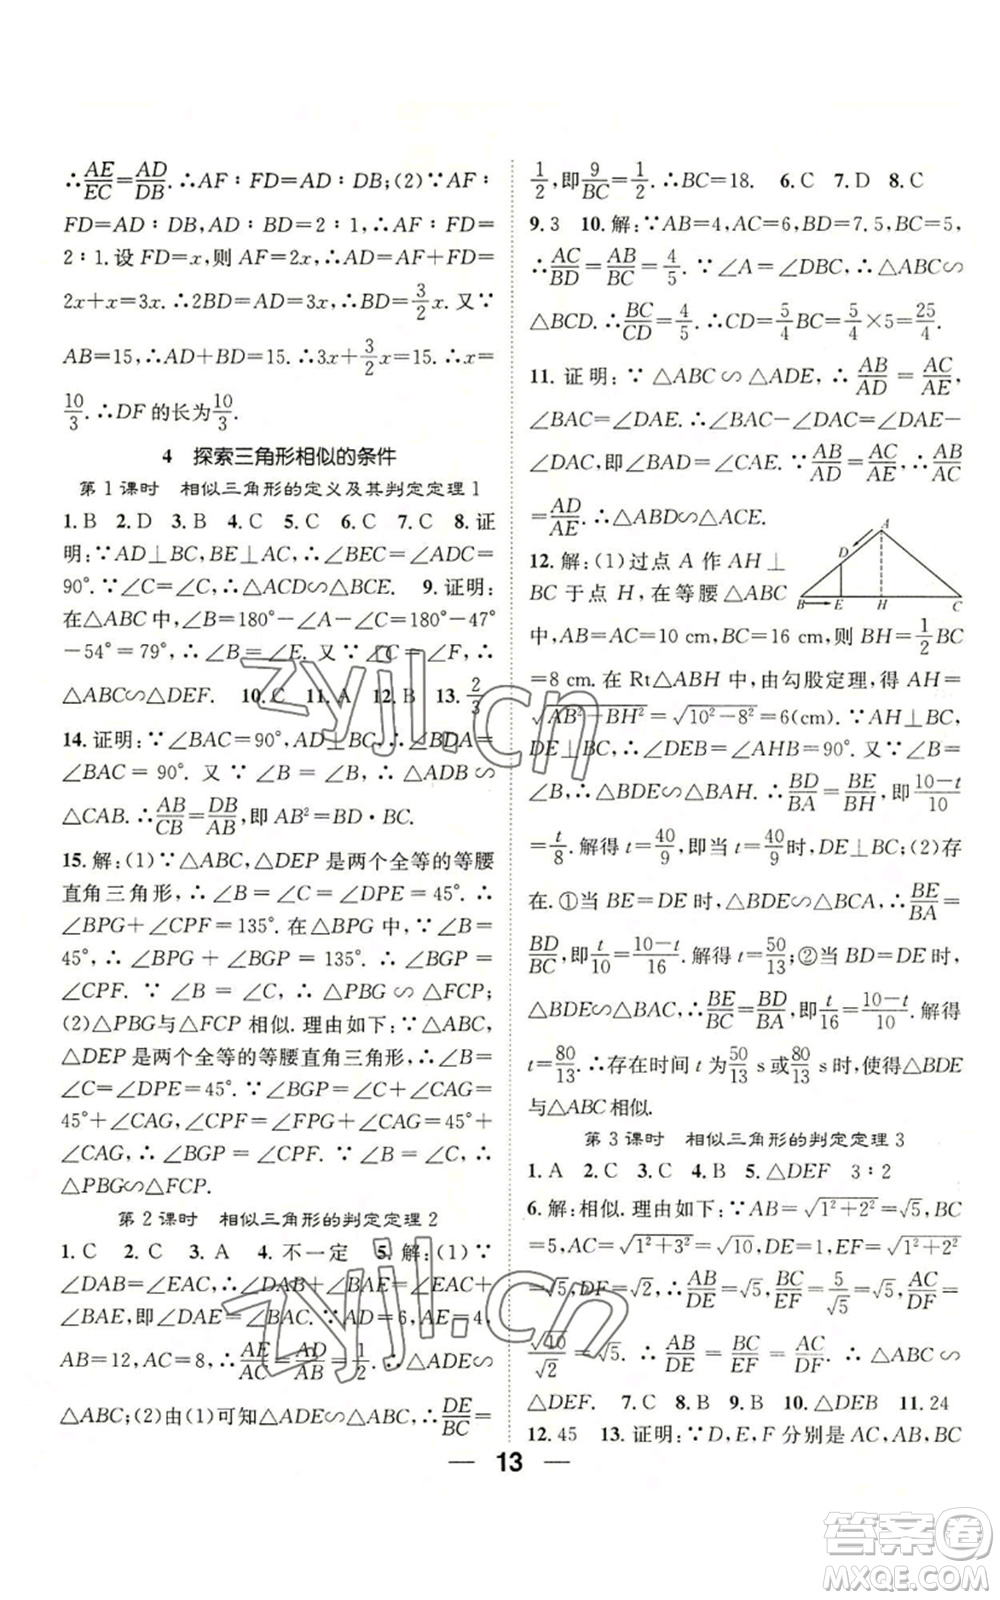 ∴AE/EC=AD/DB.∴AF∶FD=AD∶DB;(2)∵AF∶
FD=AD∶DB,AD∶BD=2∶1.∴AF∶FD=
2∶1.设 FD=x,则 AF=2x,∴AD=AF+FD=
2x+x=3x.∴2BD=AD=3x.∴BD=3/2x.又∵
AB=15,∴AD+BD=15.∴3x+3/2x=15.∴x=
10/3.∴DF 的长为10/3.
4 探索三角形相似的条件
第1课时 相似三角形的定义及其判定定理1
1.B 2.D 3.B 4.C 5.C 6.C 7.C 8.证
明:∵AD⊥BC,BE⊥AC,∴∠BEC=∠ADC=
90°.∵∠C=∠C,∴△ACD∽△BCE. 9.证明:
在△ABC 中,∠B=180°-∠A-∠C=180°-47°
-54°=79°,∴∠B=∠E.又∵∠C=∠F,∴
△ABC∽△DEF. 10.C 11.A 12.B 13.2/3
14.证明:∵∠BAC=90°,AD⊥BC,∴∠BDA=
∠BAC=90°.又∵∠B=∠B,∴△ABD∽
△CAB.∴AB/CB=DB/AB,即AB²=BD·BC.
15.解:(1)∵△ABC,△DEP 是两个全等的等腰
直角三角形,∴∠B=∠C=∠DPE=45°.∴
∠BPG+∠CPF=135°.在△BPG 中,∵∠B=
45°,∴∠BPG+∠BGP=135°.∴∠BGP=
∠CPF.∵∠B=∠C,∴△PBG∽△FCP;
(2)△PBG与△FCP 相似.理由如下:∵△ABC,
△DEP 是两个全等的等腰直角三角形,∴∠B=
∠C=∠DPE=45°.∵∠BGP=∠C+∠CAG=
45°+∠CAG,∠CPF=∠FPG+∠CAG=
45°+∠CAG,∴∠BGP=∠CPF.∵∠B=∠C,∴
△PBG∽△FCP.
第2课时 相似三角形的判定定理2
1.C 2.C 3.A 4.不一定 5.解:(1)∵
∠DAB=∠EAC,∴∠DAB+∠BAE=∠EAC+
∠BAE,即∠DAE=∠BAC.∵AD=6,AE=4,
AB=12,AC=8,∴AE/AC=AD/AB=1/2.∴△ADE∽
△ABC;(2)由(1)可知△ADE∽△ABC,∴DE/BC=
1/2,即9/BC=1/2.∴BC=18. 6.C 7.D 8.C
9.3 10.解:∵AB=4,AC=6,BD=7.5,BC=5,
∴AC/BD=AB/BC=4/5.∵∠A=∠DBC,∴△ABC∽
△BCD.∴BC/CD=4/5.∴CD=5/4BC=5/4×5=25/4.
11.证明:∵△ABC∽△ADE,∴AB/AD=AC/AE,
∠BAC=∠DAE.∴∠BAC-∠DAC=∠DAE-
∠DAC,即∠BAD=∠CAE.∵AB/AC
=AD/AE.∴△ABD∽△ACE.
12.解:(1)过点 A 作 AH⊥
BC 于点 H,在等腰△ABC
中,AB=AC=10 cm,BC=16 cm,则 BH=1/2BC
=8 cm.在 Rt△ABH 中,由勾股定理,得 AH=
√AB²-BH²=√10²-8²=6(cm).∵AH⊥BC,
DE⊥BC,∴∠DEB=∠AHB=90°.又∵∠B=
∠B,∴△DEB∽△BAH.∴BD/BA=BE/BH,即10-t/10
=t/8.解得 t=40/9,即当 t=40/9时,DE⊥BC;(2)存
在.①当 BE=DE 时,△BDE∽△BCA,∴BE/BA=
BD/BC,即t/10=10-t/16.解得 t=50/13;②当 BD=DE 时,
△BDE∽△BAC,∴BE/BC=BD/BA,即t/16=10-t/10.解得
t=80/13.∴存在时间 t 为50/13 s或80/13 s时,使得△BDE
与△ABC相似.
A
D
B
E
H
C
第3课时 相似三角形的判定定理3
1.A 2.C 3.C 4.B 5.△DEF 3∶2
6.解:相似.理由如下:∵AB=√1²+2²=√5,BC
=5,AC=√1²+3²=√10,DE=1,EF=√1²+2²
=√5,DF=√2,∴AB/DE=√5,BC/EF=5/√5=√5,AC/DF=
√10/√2=√5.∴AB/DE=BC/EF=AC/DF.∴△ABC∽
△DEF. 7.C 8.B 9.B 10.△DEA 11.24
12.45 13.证明:∵D,E,F 分别是 AC,AB,BC
— 13 —
zyjl.cn
zyjl.cn
答案圈
MXQE.COM